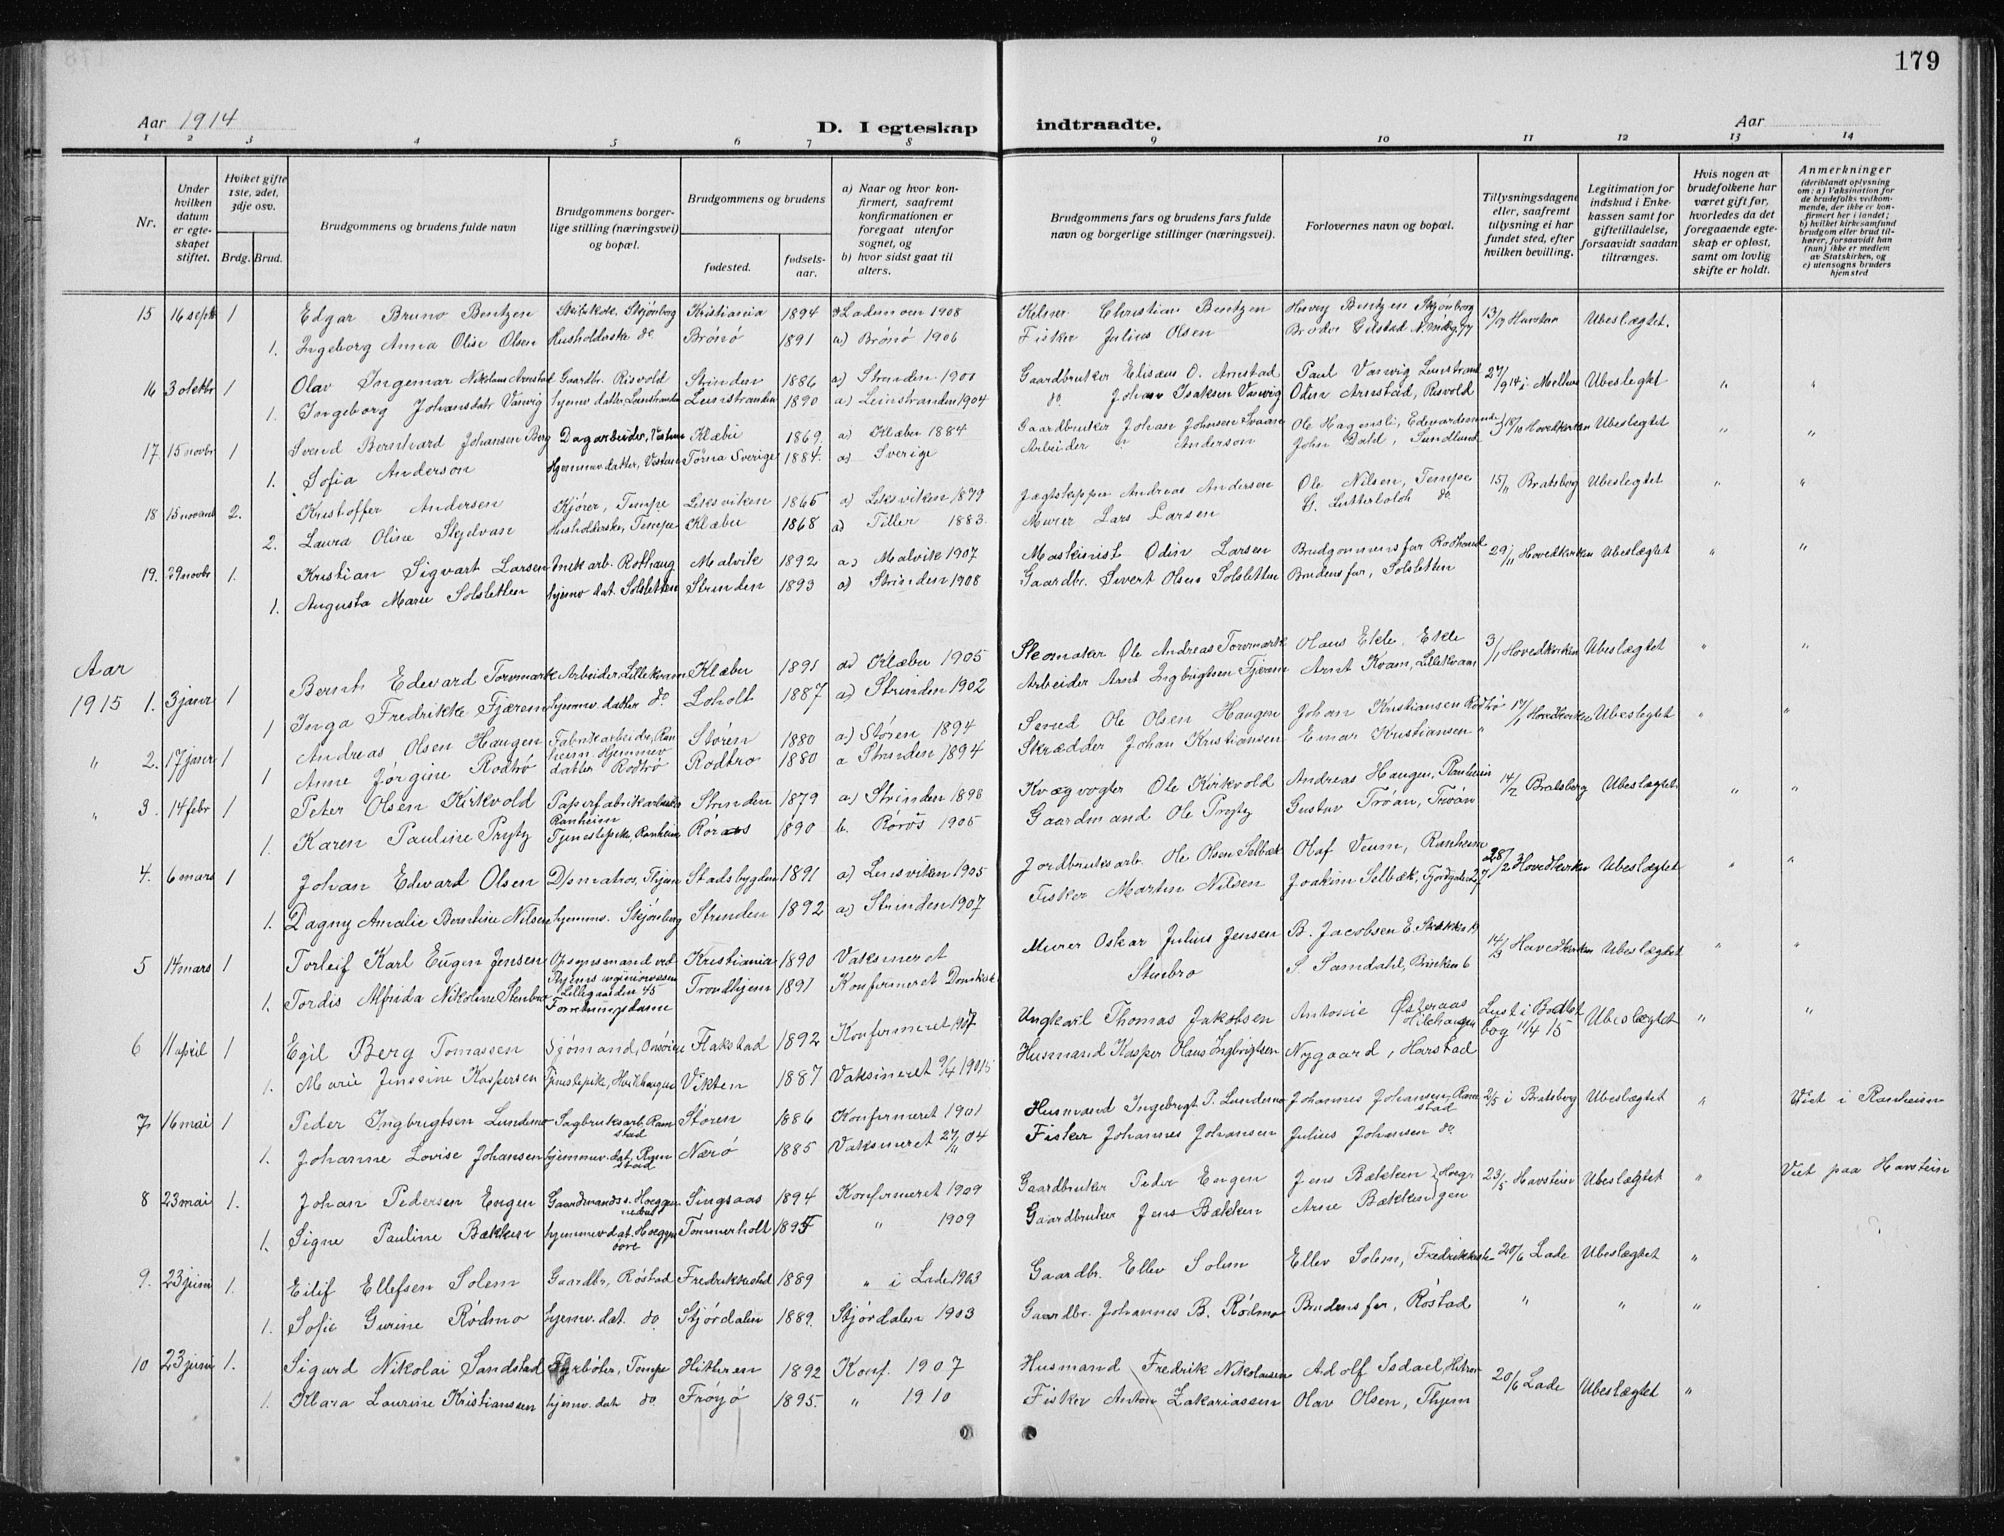 179
Aar 1914
D. I egteskap indtraadte.
Aar
1 2 3 4 5 6 7 8 9 10 11 12 13 14
Nr.
Under hvilken datum er egteskapet stiftet.
Hviket gifte 1ste, 2det, 3dje osv.
Brdg. Brud.
Brudgommens og brudens fulde navn
Brudgommens borgerlige stilling (næringsvei) og bopæl.
Brudgommens og brudens
fødested.
fødselsaar.
a) Naar og hvor konfirmert, saafremt konfirmationen er foregaat utenfor sognet, og
b) hvor sidst gaat til alters.
Brudgommens fars og brudens fars fulde navn og borgerlige stillinger (næringsvei).
Forlovernes navn og bopæl.
Tillysningsdagene eller, saafremt tillysning ei har fundet sted, efter hvilken bevilling.
Legitimation for indskud i Enkekassen samt for giftetilladelse, forsaavidt saadan tiltrænges.
Hvis nogen av brudefolkene har været gift før, hvorledes da det foregaaende egteskap er opløst, samt om lovlig skifte er holdt.
Anmerkninger
(deriblandt oplysning om: a) Vaksination for de brudefolks vedkommende, der ikke er konfirmert her i landet; b) hvilket kirkesamfund brudgom eller brud tilhører, forsaavidt han (hun) ikke er medlem av Statskirken, og c) utensogns bruders hjemsted
15 16 sept 1 Edgar Bruno Bentzen Kristiania 1894 Lademoen 1908 Kelner Christian Bentzen Bentzen Skjónberg 13/9 Havstein Ubeslægtet.
1. Ingeborg Anna Olise Olsen Husholderske do Brónó 1891 a) Brónó 1906 Fisker Julius Olsen
16 3 oktbr 1 Olav Ingemar Nikolaus Arnstad Gaardbr. Risvold Strinden 1886 a) Strinden 1901 Gaardbruker Elisæus O. Arnstad Paul Vanvig Leinstrand i Melhus Ubeslegtet " "
1. Ingeborg Johansdatr Vanvig hjemv datter, Leinstranden Leinstranden 1890 a) Leinstranden 1904 do. Johan Isaksen Vanvig Odin Arnstad, Risvold
17. 15 novbr 1 Svend Bernhard Johansen Berg Dagarbeider, Klæbu 1869. a) Klæbu 1884 Gaardbruker Johan Johnsen Svaan Ole Hagensli, 18/10 Hovedkirken Ubeslægtet " "
1. Sofia Anderson Hjemmev datter, Torna Sverige 1884. a) Sverige Arbeider " Anderson John Dahl, Sundland
18 15 novemb 2. Kristoffer Andersen Kjører, Tempe Leksviken 1865 a) Leksviken 1879 Jagtskipper Andreas Andersen Ole Nilsen, Tempe 15/11 Bratsberg Ubeslegtet " "
2. Laura Oline Skjelvan Husholderske, Tempe Klæbu 1868 a) Tiller 1883. Murer Lars Larsen do.
19. 29 novbr 1. Kristian Sigvart Larsen Rothaug Malvik 1892 a.) Malvik 1907 Maskinist Odin Larsen Brudgommens far 29/11 Hovedkirken Ubeslægtet " "
1. Augusta Marie Solsletten hjemv dat. Solsletten Strinden 1893 a) Strinden 1908 Gaardbr. Sivert Olsen Solsletten Brudens far, Solsletten
Aar
1915 1. 3 janr 1 Bernh Edward Torvmark Arbeider, Lillekvam Klæbu 1891 a) Klæbu 1905 Skomaker Ole Andreas Torvmark Olaus Ekle, Ekle 3/1 Hovedkirken Ubeslægtet " "
1 Inga Fredrikke Fjærem hjemmv. datter do Loholt 1887 a) Strinden 1902 Arbeider Arnt Ingbrigtsen Fjærem Arnt Kvam, Lillekvam
" 2. 17 janr 1 Andreas Olsen Haugen Fabrikarbeider, Ranheim Støren 1880 a.) Støren 1894 Smed Ole Olsen Haugen Johan Kristiansen Rodtrø 17/1 Hovedkirken Ubeslægtet " "
1 Anne Jørgine Rodtrø Hjemmev datter Rodtrø Rodtro 1880 a Strinden 1894 Skrædder Johan Kristiansen Einar Kristiansen "
" 3. 14 febr 1 Peter Olsen Kirkvold Papirfabrikarbeider Ranheim Strinden 1879 a.) Strinden 1898 Kvægvogter Ole Kirkvold Andreas Haugen, Ranheim 14/2 Bratsberg Ubeslægtet. " "
1. Karen Pauline Prytz Tjenestepike, Ranheim Røraas 1890 b. Røros 1905 Gaardmand Ole Prytz Gustav Trøan, Trøan
4. 6 mars 1 Johan Edward Olsen D/smatros, Thjem Stadsbygden 1891 a) Lensviken 1905 Jordbruksarb. Ole Olsen Selbæk Olaf Veum, Ranheim Hovedkirken Ubeslægtet " "
1. Dagny Amalie Berntine Nilsen hjemmv. Skjønberg Strinden 1892 a) Strinden 1907 Fisker Martin Nilsen Joakim Selbæk,
5 14 mars 1 Torleif Karl Eugen Jensen Opsynsmand ved Thjems ingeniørvæsen Kristiania 1890 Vaksineret Murer Oskar Julius Jensen B. Jacobsen 14/3 Hovedkirken Ubeslægtet " "
1. Tordis Alfrida Nikoline Stenbro Lillegaarden 45 Forretningsdame Trondhjem 1891 Konfirmeret Domkirk Stenbro S. Samdahl, Brinken 6
6 11 april 1 Egil Berg Tomassen Sjómand, Flakstad 1892 Konfirmeret 1907 Ungkarl Thomas Jakobsen Antonie Østeraas 11/4 15 Ubeslægtet " "
1. Marie Jenssine Kaspersen Tjenestepike, Vikten 1887 Vaksineret Husmand Kasper Olaus Ingbrigtsen Nygaard, Harstad
7 16 mai 1 Peder Ingbrigtsen Lundemo Sagbruksarb, Ramstad Støren 1886 Konfirmeret 1901 Husmand Ingebrigt P. Lundemo Johannes Johansen, Ramstad 2/5 i Bratsberg Ubeslægtet " Viet i Ranheim
1. Johanne Lovise Johansen hjemmev. dat, Ramstad Nærö 1885 Vaksineret 27/11 04 Fisker Johannes Johansen Julius Johansen do.
8 23 mai 1. Johan Pedersen Engen Gaardmands s. Singsaas 1894 Konfirmeret 1909 Gaardbruker Peder Engen Jens Bækken 23/5 Havstein Ubeslægtet " Viet paa Havstein
1. Signe Pauline Bækken hjemmev dat. Tømmerholt 1895 " 1909 Gaardbruker Jens Bækken Arne Bækken
9. 23 juni 1. Eilif Ellefsen Solem Gaardbr, Róstad Fredrikkestad 1889 " i Lade 1903 Gaardbr. Ellev Solem Ellev Solem, Fredrikkste 20/6 Lade Ubeslægtet "
1. Sofie Gurine Rødmo hjemv. dat. do. Stjórdalen 1889. Stjórdalen 1903 Gaardbr. Johannes B. Rødmo Brudens far, Rostad " " "
10 23 juni 1. Sigurd Nikolai Sandstad Fyrbøter, Tempe Hitteren 1892 Konf. 1907 Husmand Fredrik Nikolaisen Adolf Isdael, 20/6 Lade Ubeslægtet "
1. Klara Laurine Kristianssen hjemv. dat do. Frøyó 1895. " 1910 Fisker Anton Zakariassen Olav Olsen, Thjem